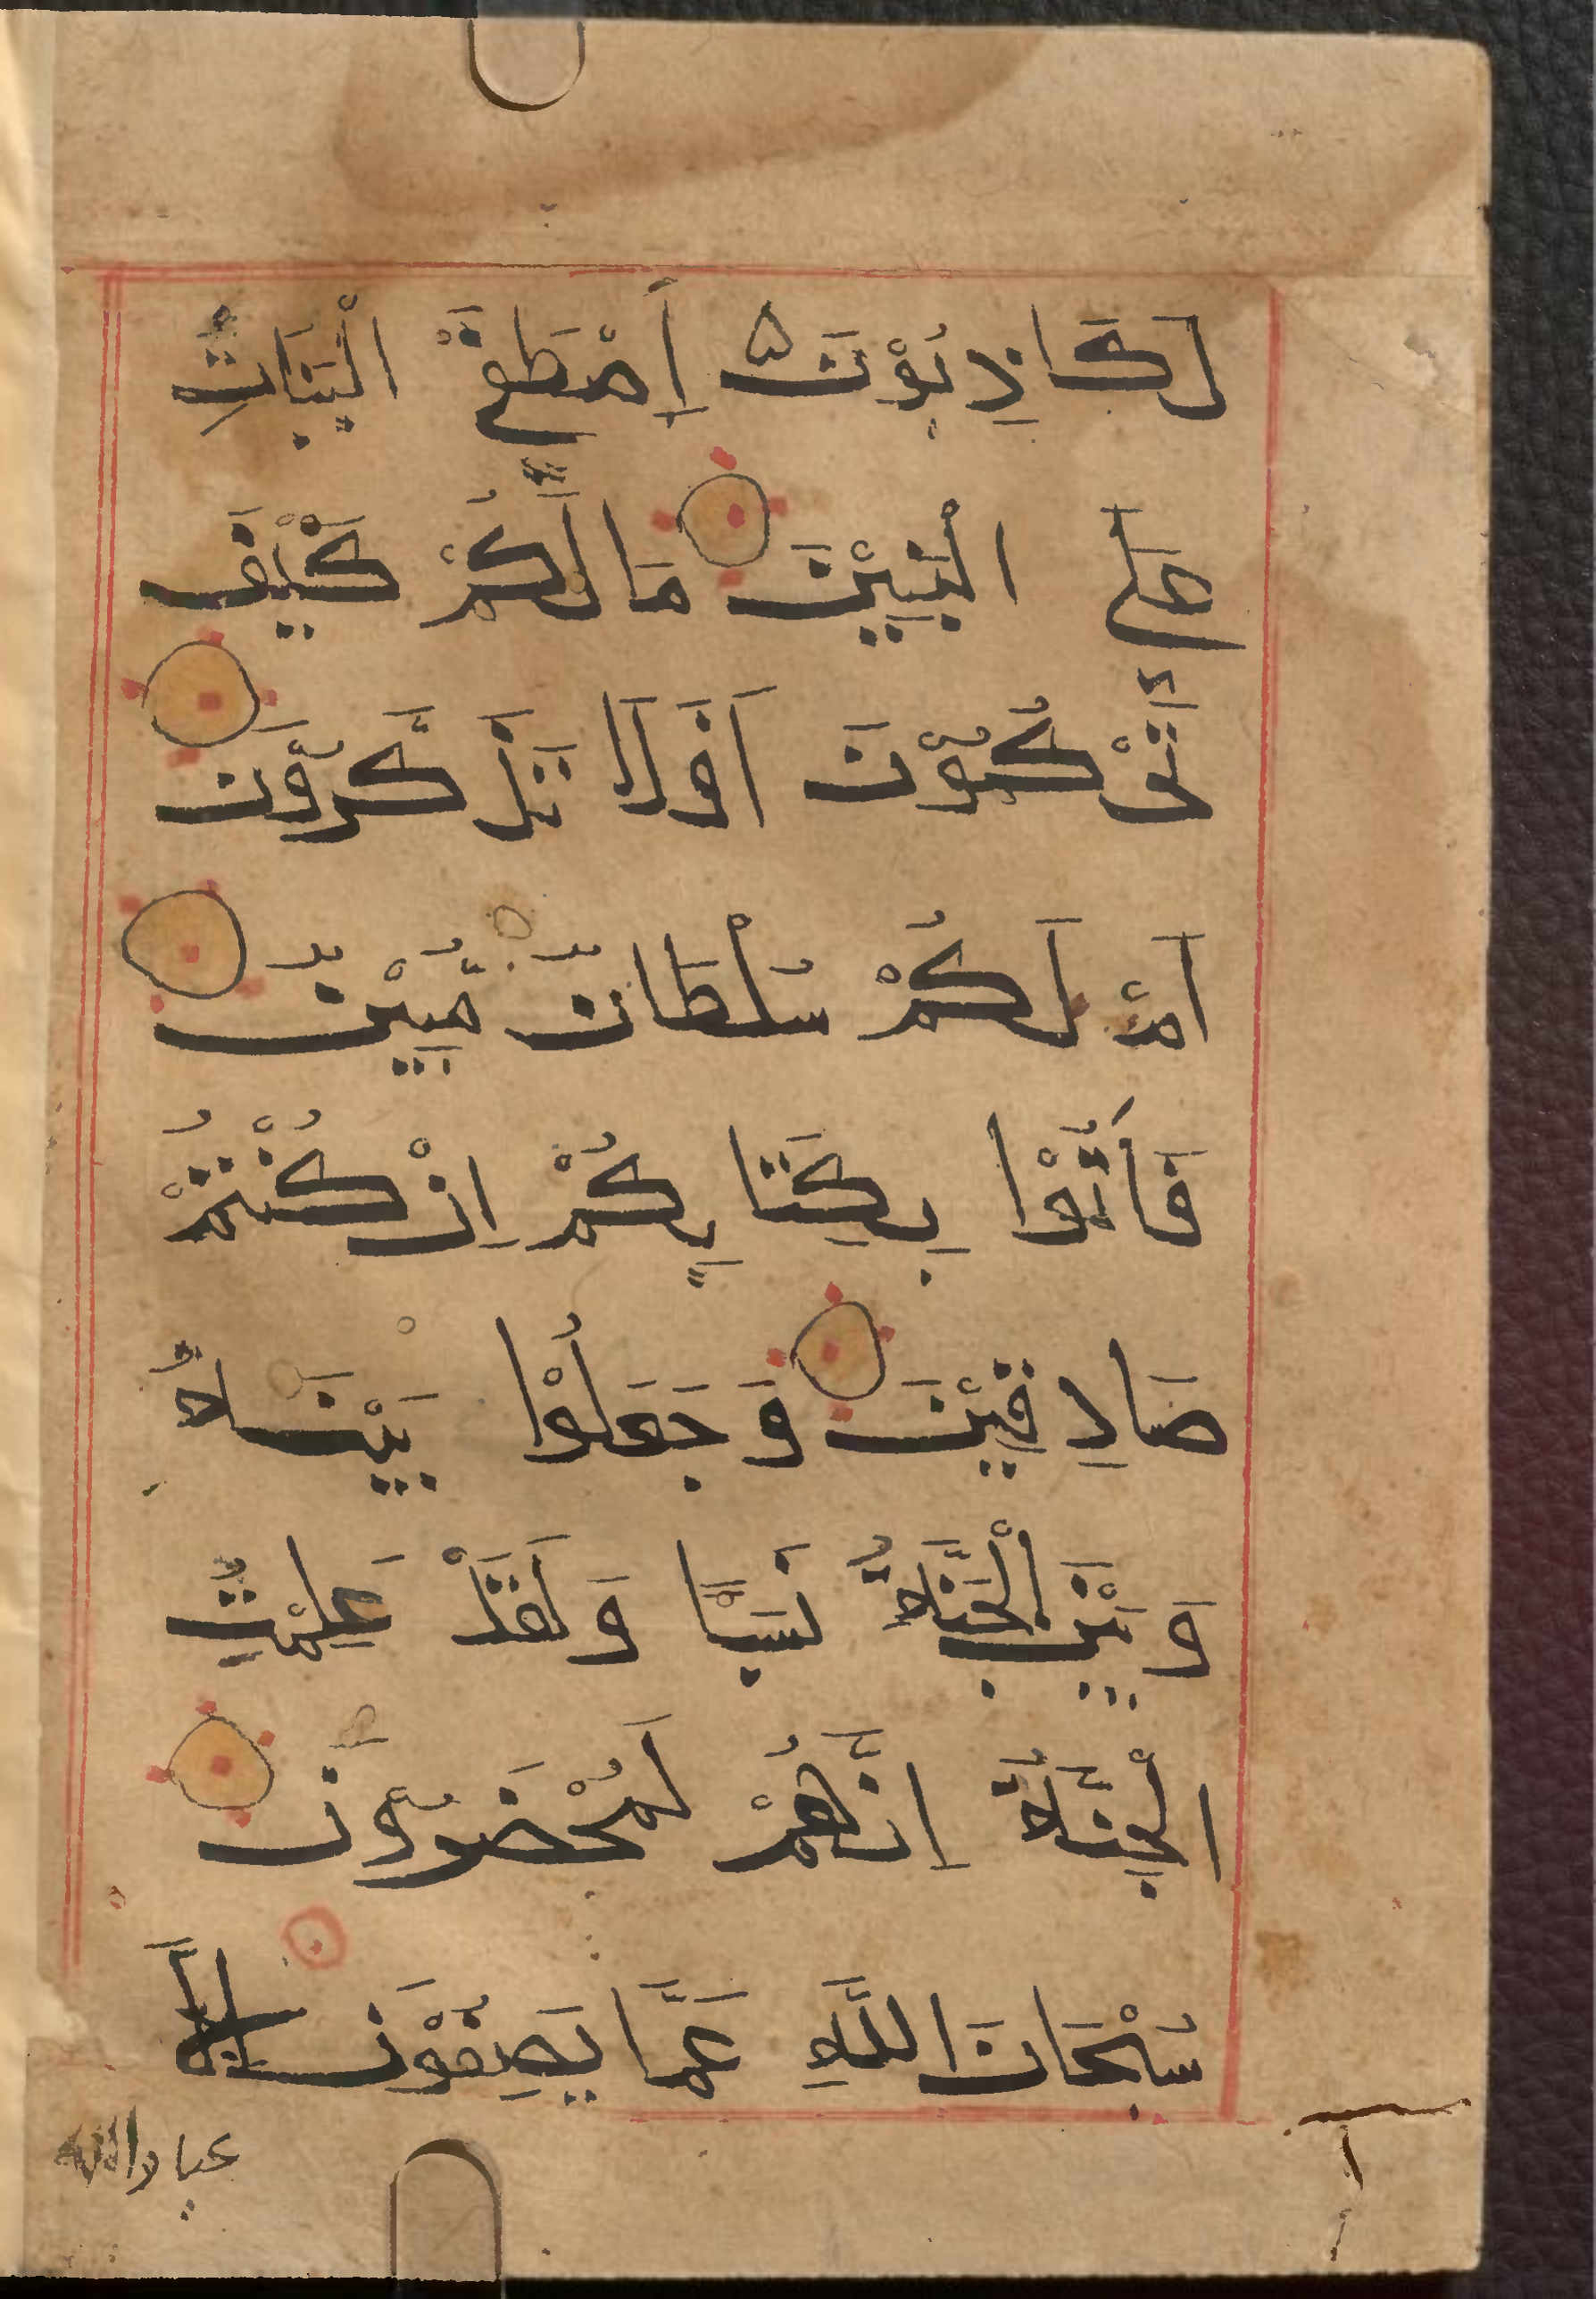 لَكَاذِبُوْنَ اَصْطَفَي الْبَنَاتِ
عَلَي الْبَنِيْنَ مَا لَكُمْ كَيْفَ
تَحْكُمُوْنَ اَفَلَا تَذَكَّرُوْنَ
اَمْ لَكُمْ سُلْطَانٌ مُّبِيْنٌ
فَأْتُوْا بِكِتَابِكُمْ اِنْ كُنْتُمْ
صَادِقِيْنَ وَجَعَلُوْا بَيْنَهُ
وَبَيْنَ الْجِنَّةِ نَسَبًا وَلَقَدْ عَلِمَتِ
الْجِنَّةُ اِنَّهُمْ لَمُحْضَرُوْنَ
سُبْحَانَ اللَّهِ عَمَّا يَصِفُوْنَ اِلَّا
عباد الله